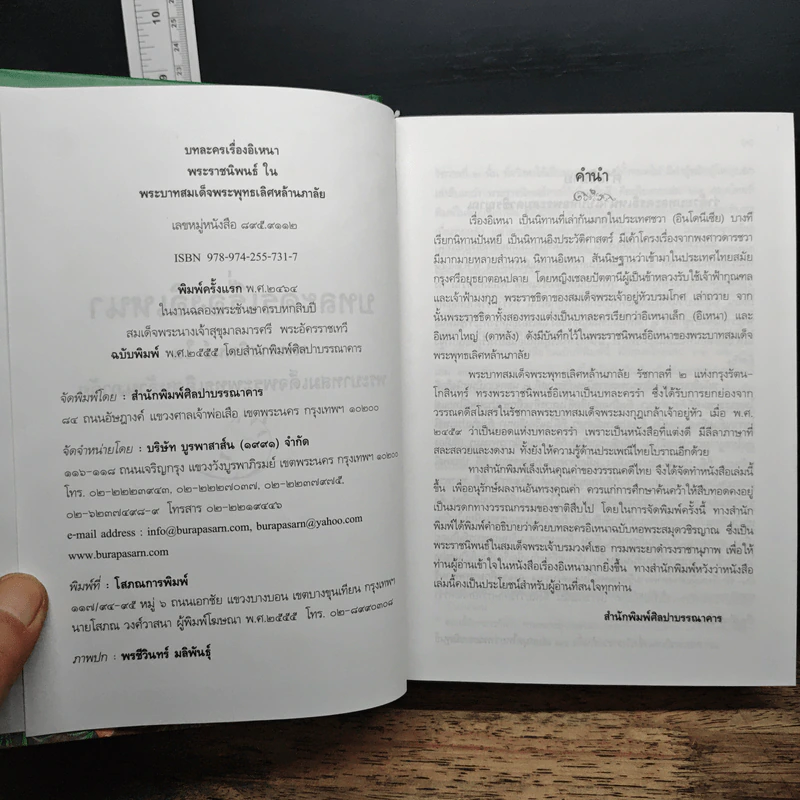 บทละครเรื่องอิเหนา
พระราชนิพนธ์ ใน
พระบาทสมเด็จพระพุทธเลิศหล้านภาลัย
เลขหมู่หนังสือ ๘๙๕.๙๑๑๒
ISBN 978-974-255-731-7
พิมพ์ครั้งแรก พ.ศ.๒๔๖๔
ในงานฉลองพระชันษาครบหกสิบปี
สมเด็จพระนางเจ้าสุขุมาลมารศรี พระอัครราชเทวี
ฉบับพิมพ์ พ.ศ.๒๕๕๕ โดยสำนักพิมพ์ศิลปาบรรณาคาร
จัดพิมพ์โดย : สำนักพิมพ์ศิลปาบรรณาคาร
๘๔ ถนนอัษฎางค์ แขวงศาลเจ้าพ่อเสือ เขตพระนคร กรุงเทพฯ ๑๐๒๐๐
จัดจำหน่ายโดย : บริษัท บูรพาสาส์น (๑๙๙๑) จำกัด
๑๑๖-๑๑๘ ถนนเจริญกรุง แขวงวังบูรพาภิรมย์ เขตพระนคร กรุงเทพฯ ๑๐๒๐๐
โทร. ๐๒-๒๒๒๓๙๔๓, ๐๒-๒๒๒๗๐๓๗, ๐๒-๒๒๓๗๙๗๕,
๐๒-๖๒๓๗๔๙๘-๙ โทรสาร ๐๒-๒๒๑๙๔๔๖
e-mail address : info@burapasarn.com, burapasarn@yahoo.com
www.burapasarn.com
พิมพ์ที่ : โสภณการพิมพ์
๑๑๗/๙๔-๙๕ หมู่ ๖ ถนนเอกชัย แขวงบางบอน เขตบางขุนเทียน กรุงเทพฯ
นายโสภณ วงศ์วาสนา ผู้พิมพ์โฆษณา พ.ศ.๒๕๕๕ โทร. ๐๒-๘๙๙๐๓๐๘
ภาพปก : พรชีวินทร์ มลิพันธุ์
คำนำ
เรื่องอิเหนา เป็นนิทานที่เล่ากันมากในประเทศชวา (อินโดนีเซีย) บางที
เรียกนิทานปันหยี เป็นนิทานอิงประวัติศาสตร์ มีเค้าโครงเรื่องจากพงศาวดารชวา
มีมากมายหลายสำนวน นิทานอิเหนา สันนิษฐานว่าเข้ามาในประเทศไทยสมัย
กรุงศรีอยุธยาตอนปลาย โดยหญิงเชลยปัตตานีผู้เป็นข้าหลวงรับใช้เจ้าฟ้ากุณฑล
และเจ้าฟ้ามงกุฎ พระราชธิดาของสมเด็จพระเจ้าอยู่หัวบรมโกศ เล่าถวาย จาก
นั้นพระราชธิดาทั้งสองทรงแต่งเป็นบทละครเรียกว่าอิเหนาเล็ก (อิเหนา) และ
อิเหนาใหญ่ (ดาหลัง) ดังมีบันทึกไว้ในพระราชนิพนธ์อิเหนาของพระบาทสมเด็จ
พระพุทธเลิศหล้านภาลัย
พระบาทสมเด็จพระพุทธเลิศหล้านภาลัย รัชกาลที่ ๒ แห่งกรุงรัตน-
โกสินทร์ ทรงพระราชนิพนธ์อิเหนาเป็นบทละครรำ ซึ่งได้รับการยกย่องจาก
วรรณคดีสโมสรในรัชกาลพระบาทสมเด็จพระมงกุฎเกล้าเจ้าอยู่หัว เมื่อ พ.ศ.
๒๔๕๙ ว่าเป็นยอดแห่งบทละครรำ เพราะเป็นหนังสือที่แต่งดี มีลีลาภาษาที่
สละสลวยและงดงาม ทั้งยังให้ความรู้ด้านประเพณีไทยโบราณอีกด้วย
ทางสำนักพิมพ์เล็งเห็นคุณค่าของวรรณคดีไทย จึงได้จัดทำหนังสือเล่มนี้
ขึ้น เพื่ออนุรักษ์ผลงานอันทรงคุณค่า ควรแก่การศึกษาค้นคว้าให้สืบทอดคงอยู่
เป็นมรดกทางวรรณกรรมของชาติสืบไป โดยในการจัดพิมพ์ครั้งนี้ ทางสำนัก
พิมพ์ได้พิมพ์คำอธิบายว่าด้วยบทละครอิเหนาฉบับหอพระสมุดวชิรญาณ ซึ่งเป็น
พระราชนิพนธ์ในสมเด็จพระเจ้าบรมวงศ์เธอ กรมพระยาดำรงราชานุภาพ เพื่อให้
ท่านผู้อ่านเข้าใจในหนังสือเรื่องอิเหนามากยิ่งขึ้น ทางสำนักพิมพ์หวังว่าหนังสือ
เล่มนี้คงเป็นประโยชน์สำหรับผู้อ่านที่สนใจทุกท่าน
สำนักพิมพ์ศิลปาบรรณาคาร